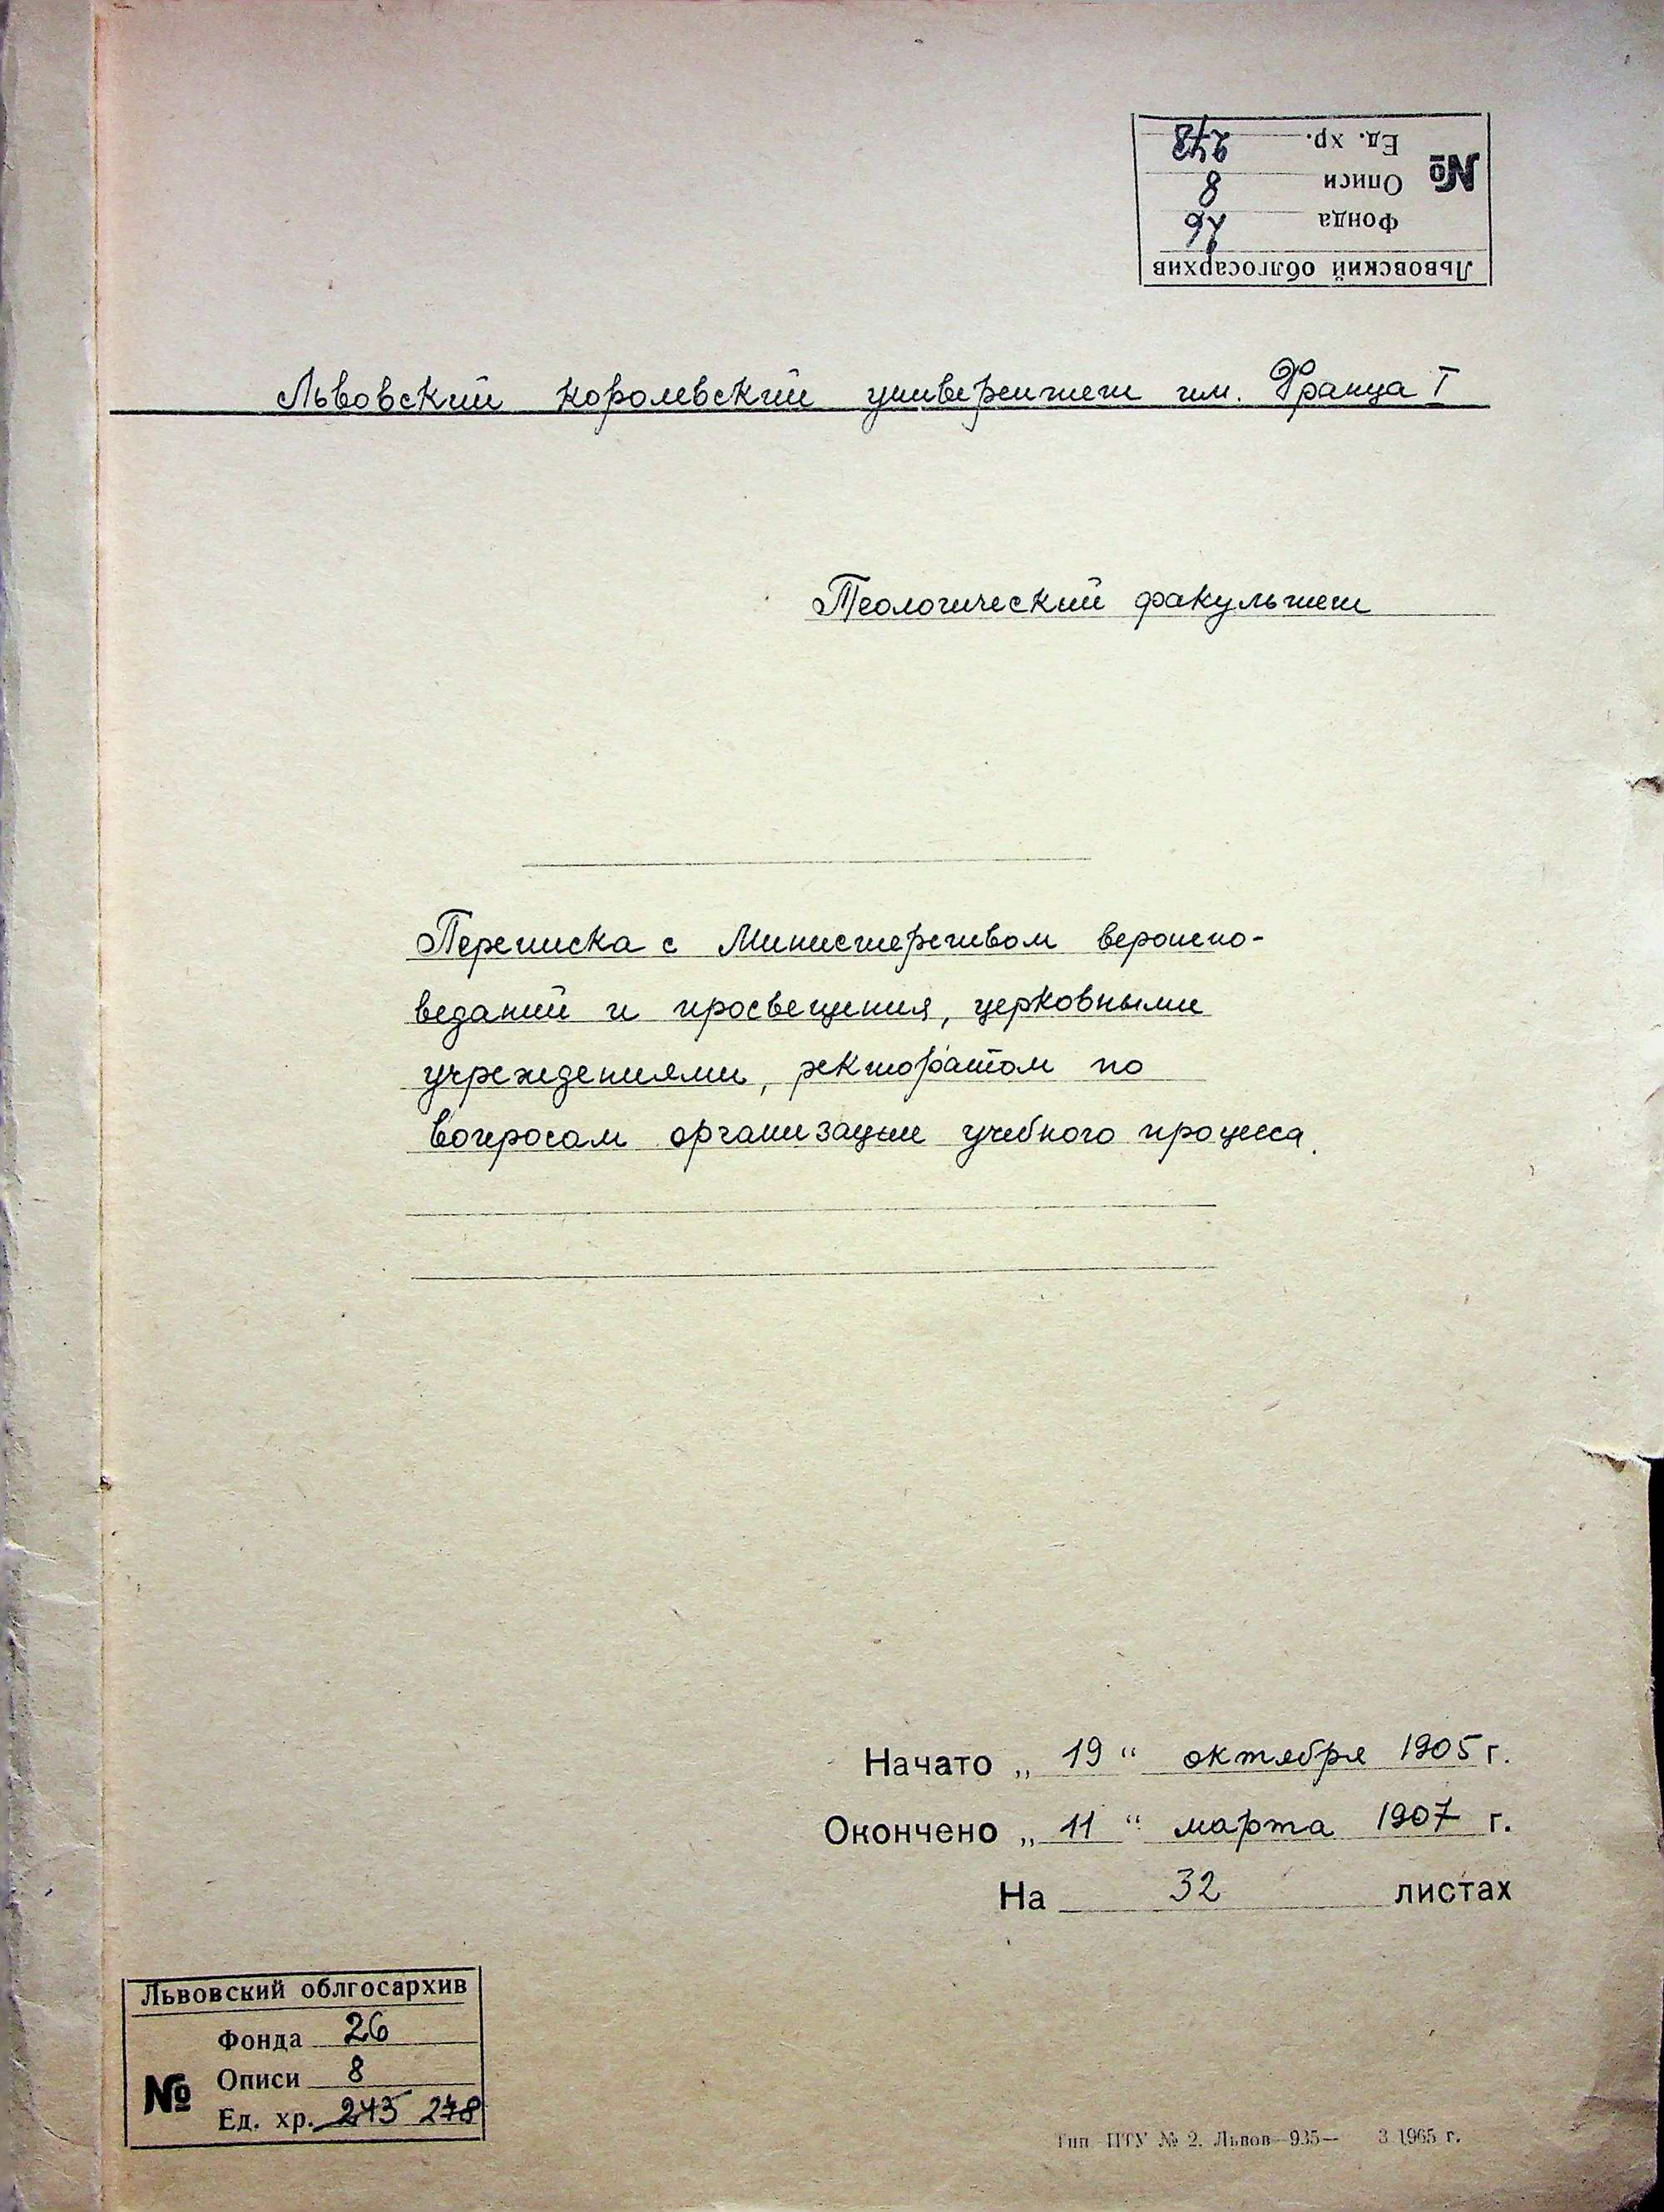 Львовский облгосархив
Фонда 26
Описи 8
№
Ед. хр.
Львовский королевский университет им. Франца I
Теологический факультет
Переписка с Министерством вероиспо-
веданий и просвещения, церковными
учреждениями, ректоратом по
вопросам организации учебного процесса.
Начато „ 19 “ октября 1905 г.
Окончено „ 11 “ марта 1907 г.
На 32 листах
Львовский облгосархив
Фонда 26
Описи 8
№
Ед. хр. 243 278
Тип ПТУ № 2. Львов—935— 3 1965 г.